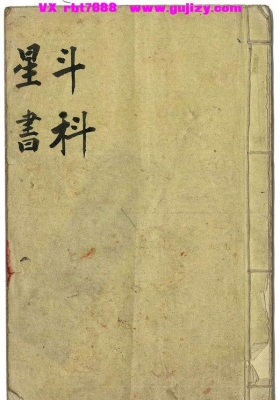 VX rbt7888 www.gujizy.com
斗科
星書